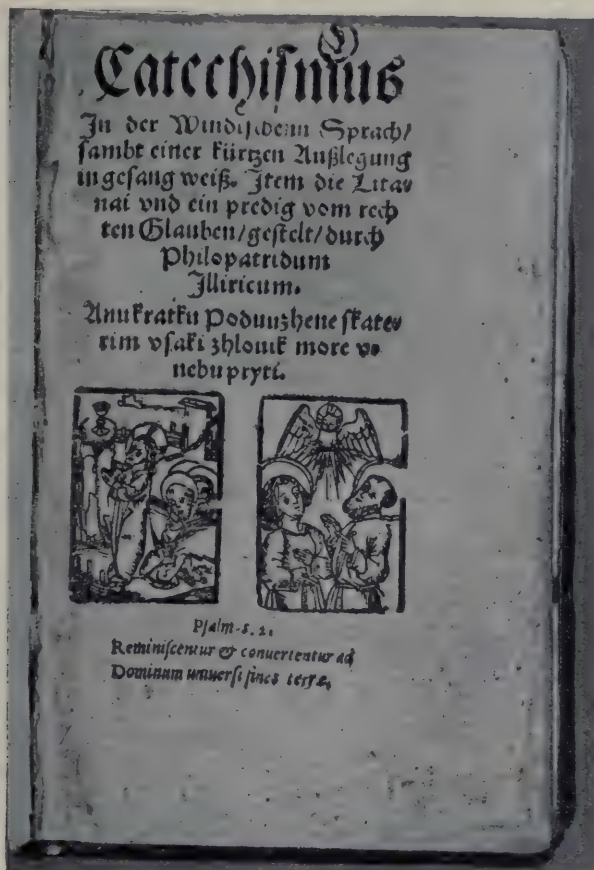 Catechismus
In der Windischenn Sprach/
sambt einer kürtzen Außlegung
in gesang weiß. Item die Litan
nai vnd ein predig vom rech
ten Glauben/gestelt/durch
Philopatridum
Illiricum.
Anu kratku Poduuzhene skate
rim vsaki zhlouik more v
nebu pryti.
Psalm.
Reminiscentur & conuertentur ad
Dominum uniuersi fines terræ.